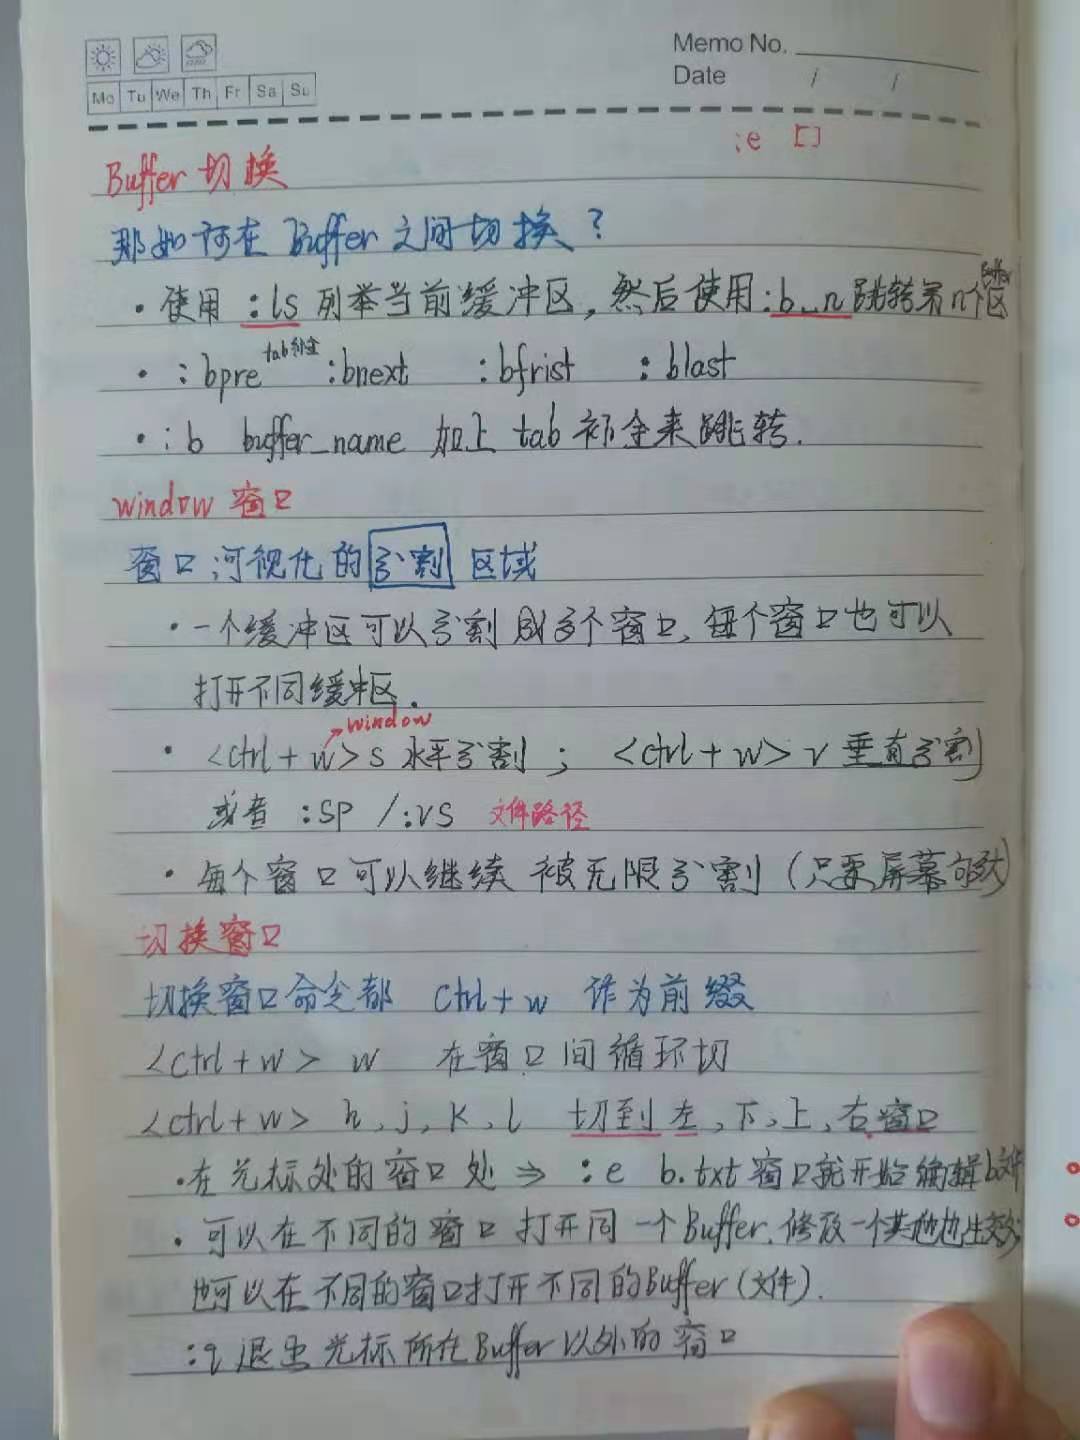 Memo No.
Date / /
Mo Tu We Th Fr Sa Su
:e []
Buffer 切换
那如何在 Buffer 之间切换？
· 使用 :ls 列举当前缓冲区，然后使用 :b_n 跳转第n个Buffer区
· :bpre tab补全 :bnext :bfrist :blast
· :b buffer_name 加上 tab 补全来跳转.
window 窗口
窗口河视化的分割区域
· 一个缓冲区可以分割成多个窗口, 每个窗口也可以
打开不同缓冲区.
→window
· <ctrl + w> s 水平分割 ; <ctrl + w> v 垂直分割
或者 :sp /:vs 文件路径
· 每个窗口可以继续被无限分割 (只要屏幕够大)
切换窗口
切换窗口命令都 Ctrl + w 作为前缀
<ctrl + w> w 在窗口间循环切
<ctrl + w> h, j, k, l 切到左, 下, 上, 右窗口
· 在光标处的窗口处 ⇒ :e b.txt 窗口就开始编辑b文件
· 可以在不同的窗口打开同一个Buffer. 修改一个其他也生效
也可以在不同的窗口打开不同的Buffer (文件).
:q 退出光标所在Buffer以外的窗口